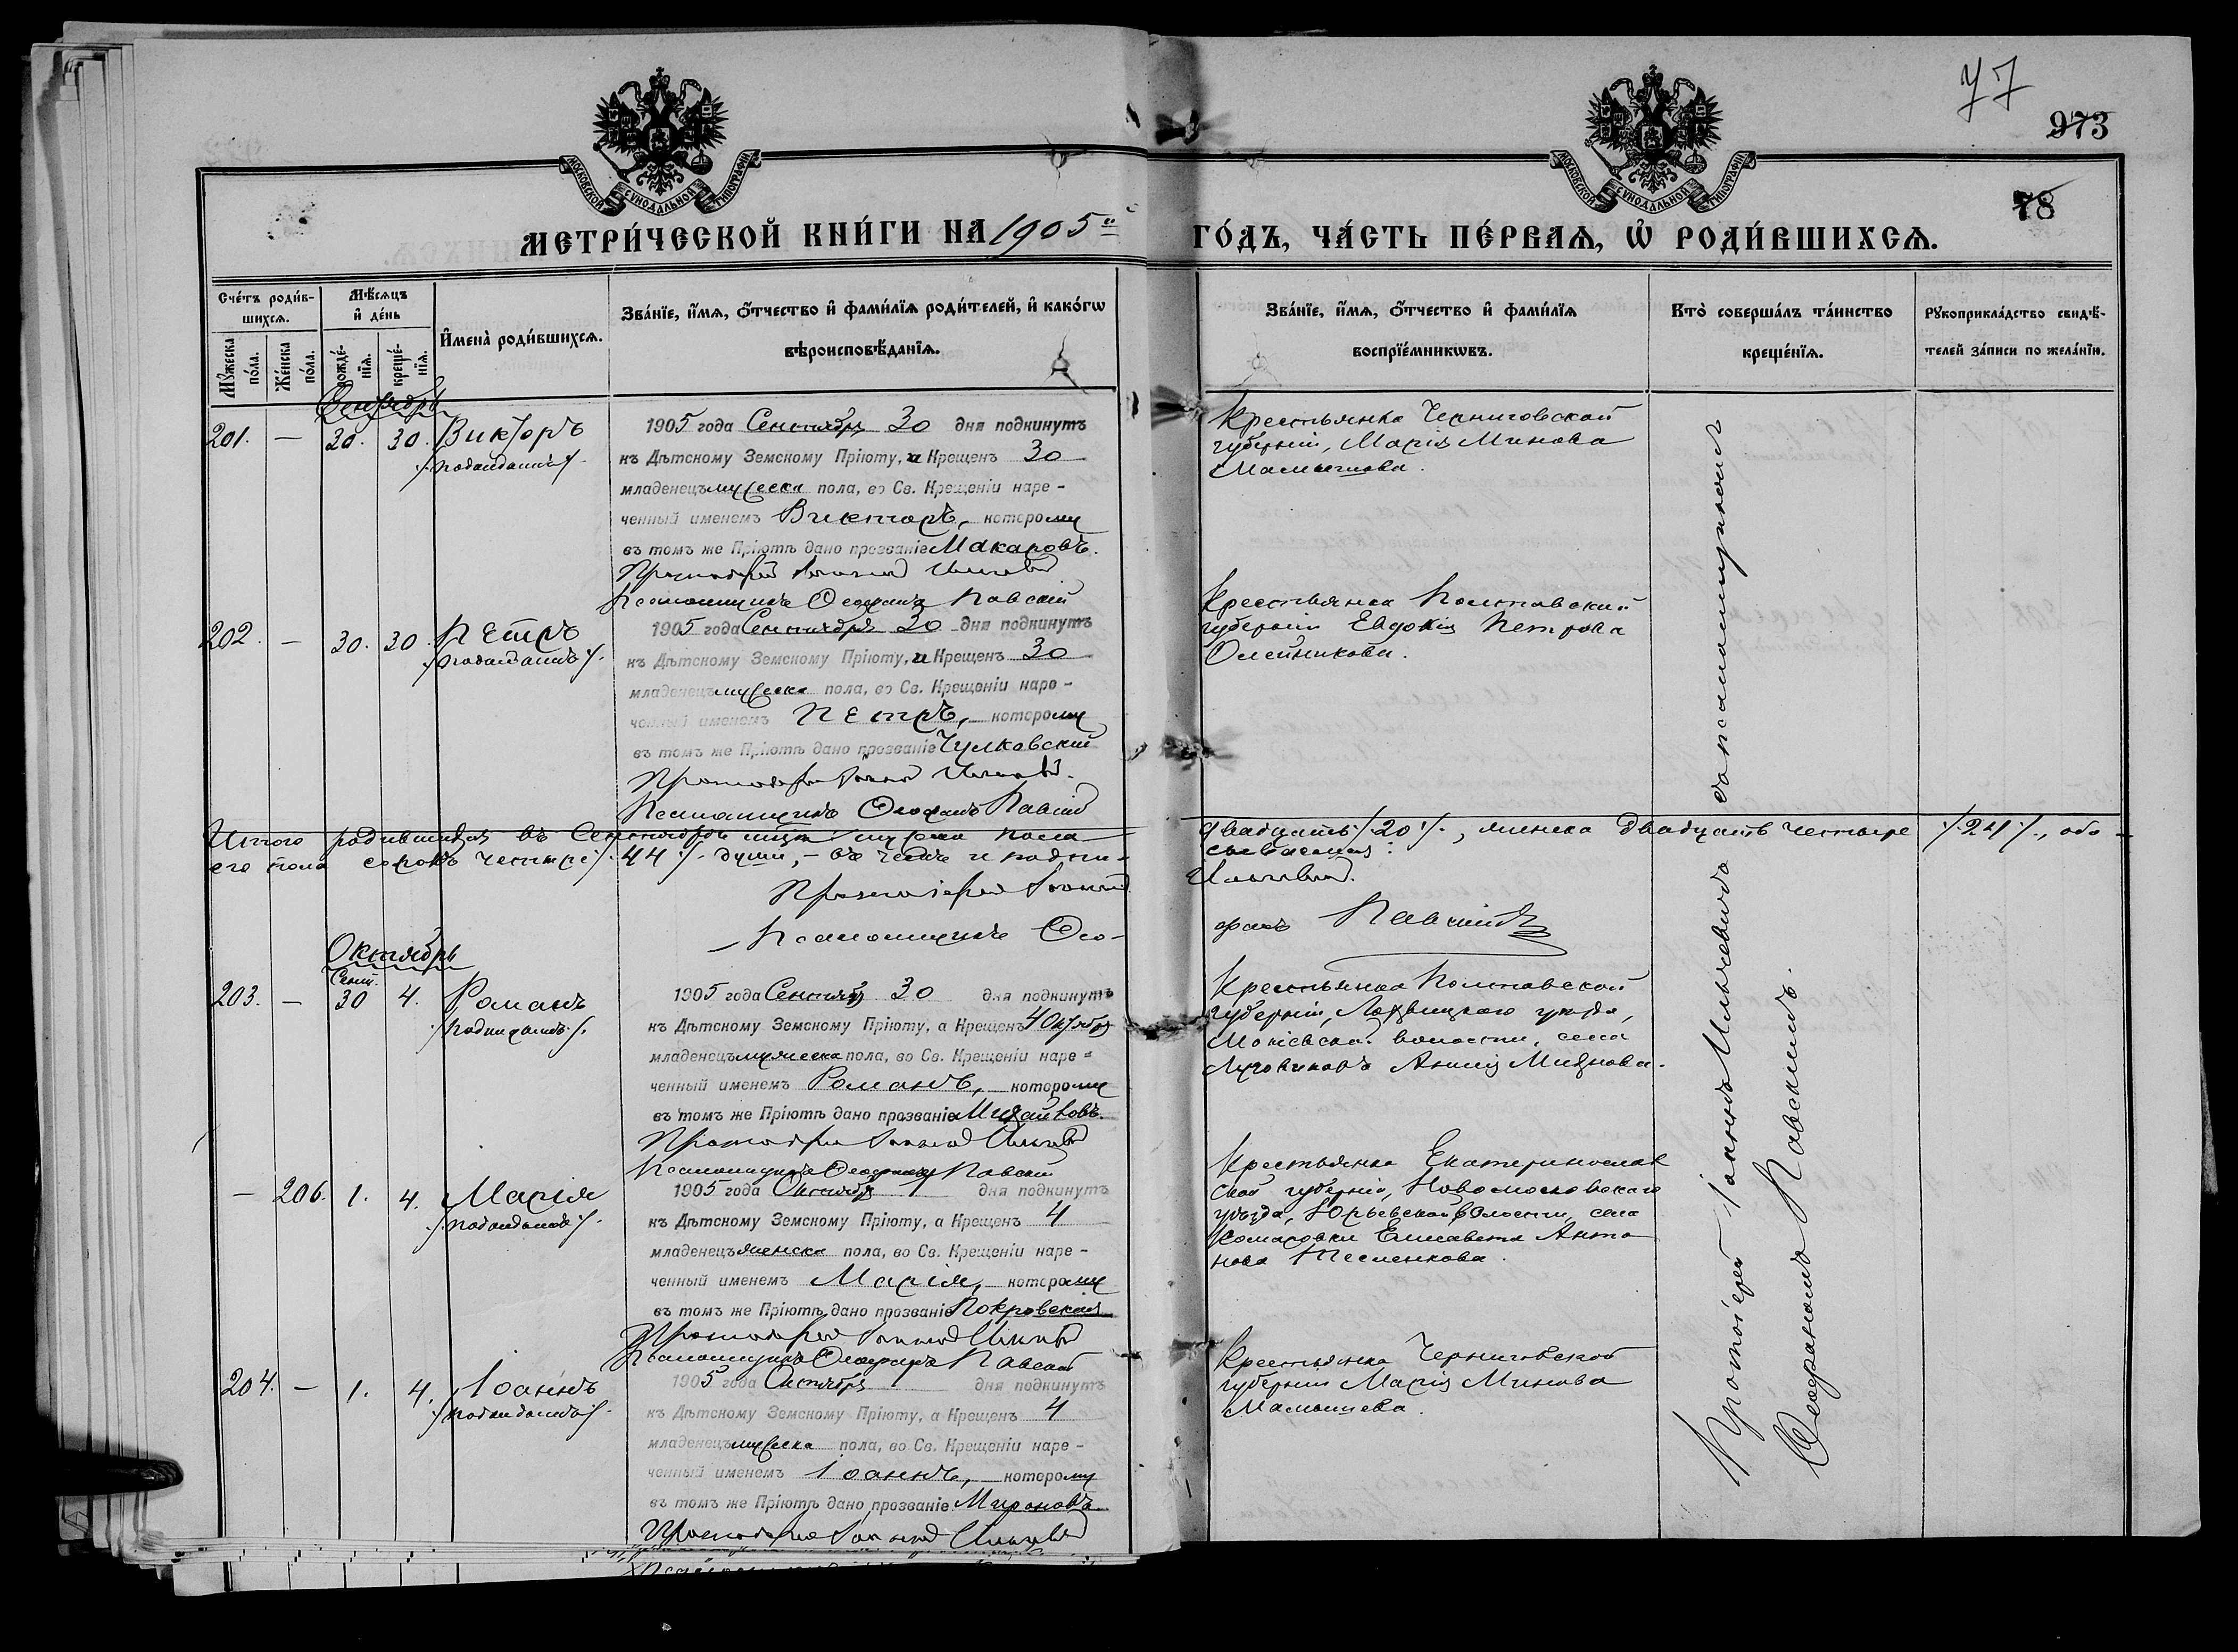 77
973
78
МОСКОВСКОЙ СУНОДАЛЬНОЙ ТИПОГРАФІИ
МОСКОВСКОЙ СУНОДАЛЬНОЙ ТИПОГРАФІИ
МЕТРИ́ЧЕСКОЙ КНИ́ГИ НА 1905й ГО́ДЪ, ЧА́СТЬ ПЕ́РВАѦ, Ѡ҆ РОДИ́ВШИХСѦ.
Сче́тъ роди́в-
шихсѧ.
Мꙋ́жеска по́ла.
Же́нска по́ла.
Мѣ́сѧцъ
и҆ де́нь
рожде́-
нїѧ.
креще́-
нїѧ.
И҆мена̀ роди́вшихсѧ.
Зва́нїе, и҆́мѧ, ѻ҆́тчество и҆ фами́лїѧ роди́телей, и҆ како́гѡ
вѣроисповѣ́данїѧ.
Зва́нїе, и҆́мѧ, ѻ҆́тчество и҆ фами́лїѧ
воспрїе́мникѡвъ.
Кто̀ соверша́лъ та́инство
креще́нїѧ.
Рꙋкоприкла́дство свидѣ́-
телей за́писи по жела́нїю.
Сентябрь
201. — 30. 30. Викторъ
1905 года Сентября 30 дня подкинутъ
къ Дѣтскому Земскому Пріюту, и Крещенъ 30
младенецъ мужеска пола, во Св. Крещеніи наре-
ченный именемъ Викторъ, которому
въ томъ же Пріютѣ дано прозваніе Макаровъ.
Протоіерей Іоаннъ
Псаломщикъ Ѳеофанъ Павскій
Крестьянка Черниговской
губерніи, Марія Минова
202. — 30. 30. Петръ
1905 года Сентября 30 дня подкинутъ
къ Дѣтскому Земскому Пріюту, и Крещенъ 30
младенецъ мужеска пола, во Св. Крещеніи наре-
ченный именемъ Петръ, которому
въ томъ же Пріютѣ дано прозваніе Чулковскій
Протоіерей Іоаннъ
Псаломщикъ Ѳеофанъ Павскій
Крестьянка Полтавской
губерніи Евдокія Петрова
Олейникова.
Итого родившихся въ Сентябрѣ мцѣ мужеска пола двадцать /20/, женска двадцать четыре /24/, обо-
его пола сорокъ четыре /44/ души, - въ числѣ и подки-
Протоіерей Іоаннъ
Псаломщикъ Ѳео- фанъ Павскій
Октябрь
Сент.
203. — 30 4. Романъ
1905 года Сентября 30 дня подкинутъ
къ Дѣтскому Земскому Пріюту, а Крещенъ 4 Октября
младенецъ мужеска пола, во Св. Крещеніи наре=
ченный именемъ Романъ, которому
въ томъ же Пріютѣ дано прозваніе Михайловъ.
Протоіерей Іоаннъ
Псаломщикъ Ѳеофанъ Павскій
Крестьянка Полтавской
губерніи, Лохвицкаго уѣзда,
волости, села
— 206. 1. 4. Марія
1905 года Октября 1 дня подкинутъ
къ Дѣтскому Земскому Пріюту, а Крещенъ 4
младенецъ женска пола, во Св. Крещеніи наре-
ченный именемъ Марія, которому
въ томъ же Пріютѣ дано прозваніе Покровская
Протоіерей Іоаннъ
Псаломщикъ Ѳеофанъ Павскій
Крестьянка Екатеринослав
ской губерніи, Новомосковскаго
уѣзда, Юрьевской волости, села
Комаровки Елисавета Анто
нова
204. — 1. 4. Іоаннъ
1905 года Октября 1 дня подкинутъ
къ Дѣтскому Земскому Пріюту, а Крещенъ 4
младенецъ мужеска пола, во Св. Крещеніи наре-
ченный именемъ Іоаннъ, которому
въ томъ же Пріютѣ дано прозваніе Мироновъ.
Протоіерей Іоаннъ
Крестьянка Черниговской
губерніи Марія Минова
Протоіерей Іоаннъ Ильчевичъ съ псаломщикомъ
Ѳеофаномъ Павскимъ.